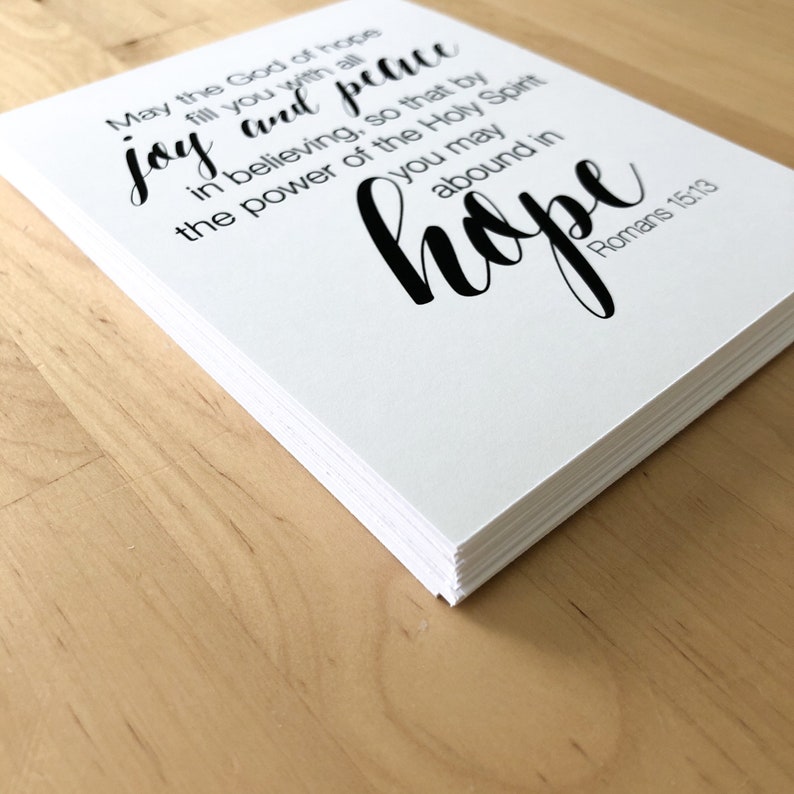 May the God of hope
fill you with all
joy and peace
in believing, so that by
the power of the Holy Spirit
you may
abound in
hope
Romans 15:13